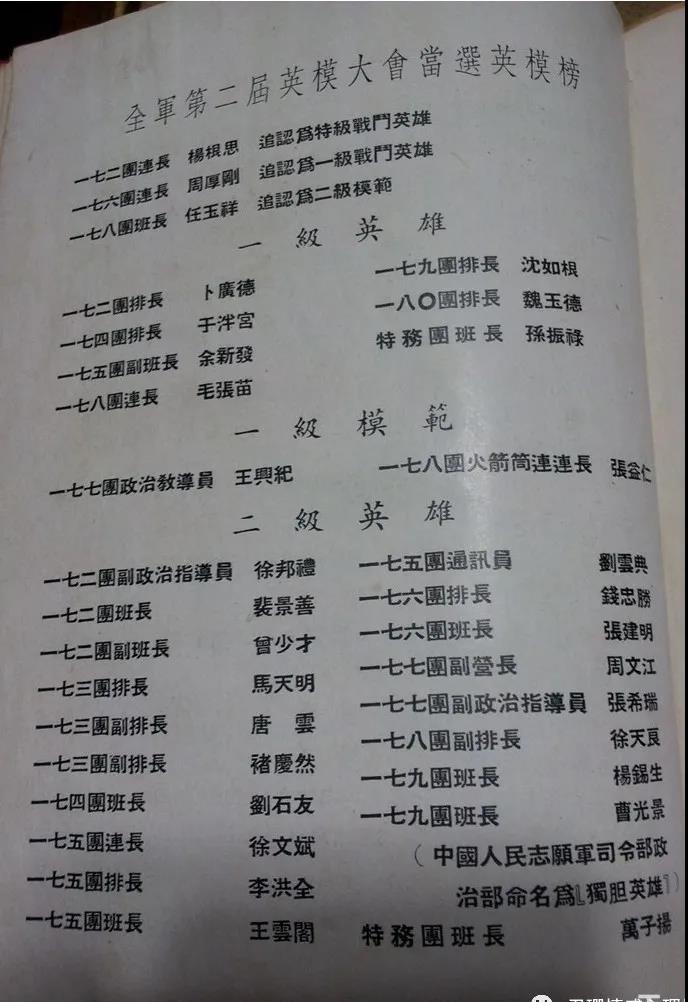 全軍第二届英模大會當選英模榜
一七二團連長 楊根思 追認爲特級戰鬥英雄
一七六團連長 周厚剛 追認爲一級戰鬥英雄
一七八團班長 任玉祥 追認爲二級模範
一級英雄
一七二團排長 卜廣德
一七四團排長 于泮宮
一七五團副班長 余新發
一七八團連長 毛張苗
一七九團排長 沈如根
一八〇團排長 魏玉德
特務團班長 孫振祿
一級模範
一七七團政治敎導員 王興紀
一七八團火箭筒連連長 張益仁
二級英雄
一七二團副政治指導員 徐邦禮
一七二團班長 裴景善
一七二團副班長 曾少才
一七三團排長 馬天明
一七三團副排長 唐雲
一七三團副排長 褚慶然
一七四團班長 劉石友
一七五團連長 徐文斌
一七五團排長 李洪全
一七五團班長 王雲閣
一七五團通訊員 劉雲典
一七六團排長 錢忠勝
一七六團班長 張建明
一七七團副營長 周文江
一七七團副政治指導員 張希瑞
一七八團副排長 徐天良
一七九團班長 楊錫生
一七九團班長 曹光景
(中國人民志願軍司令部政
治部命名爲「獨胆英雄」)
特務團班長 萬子揚